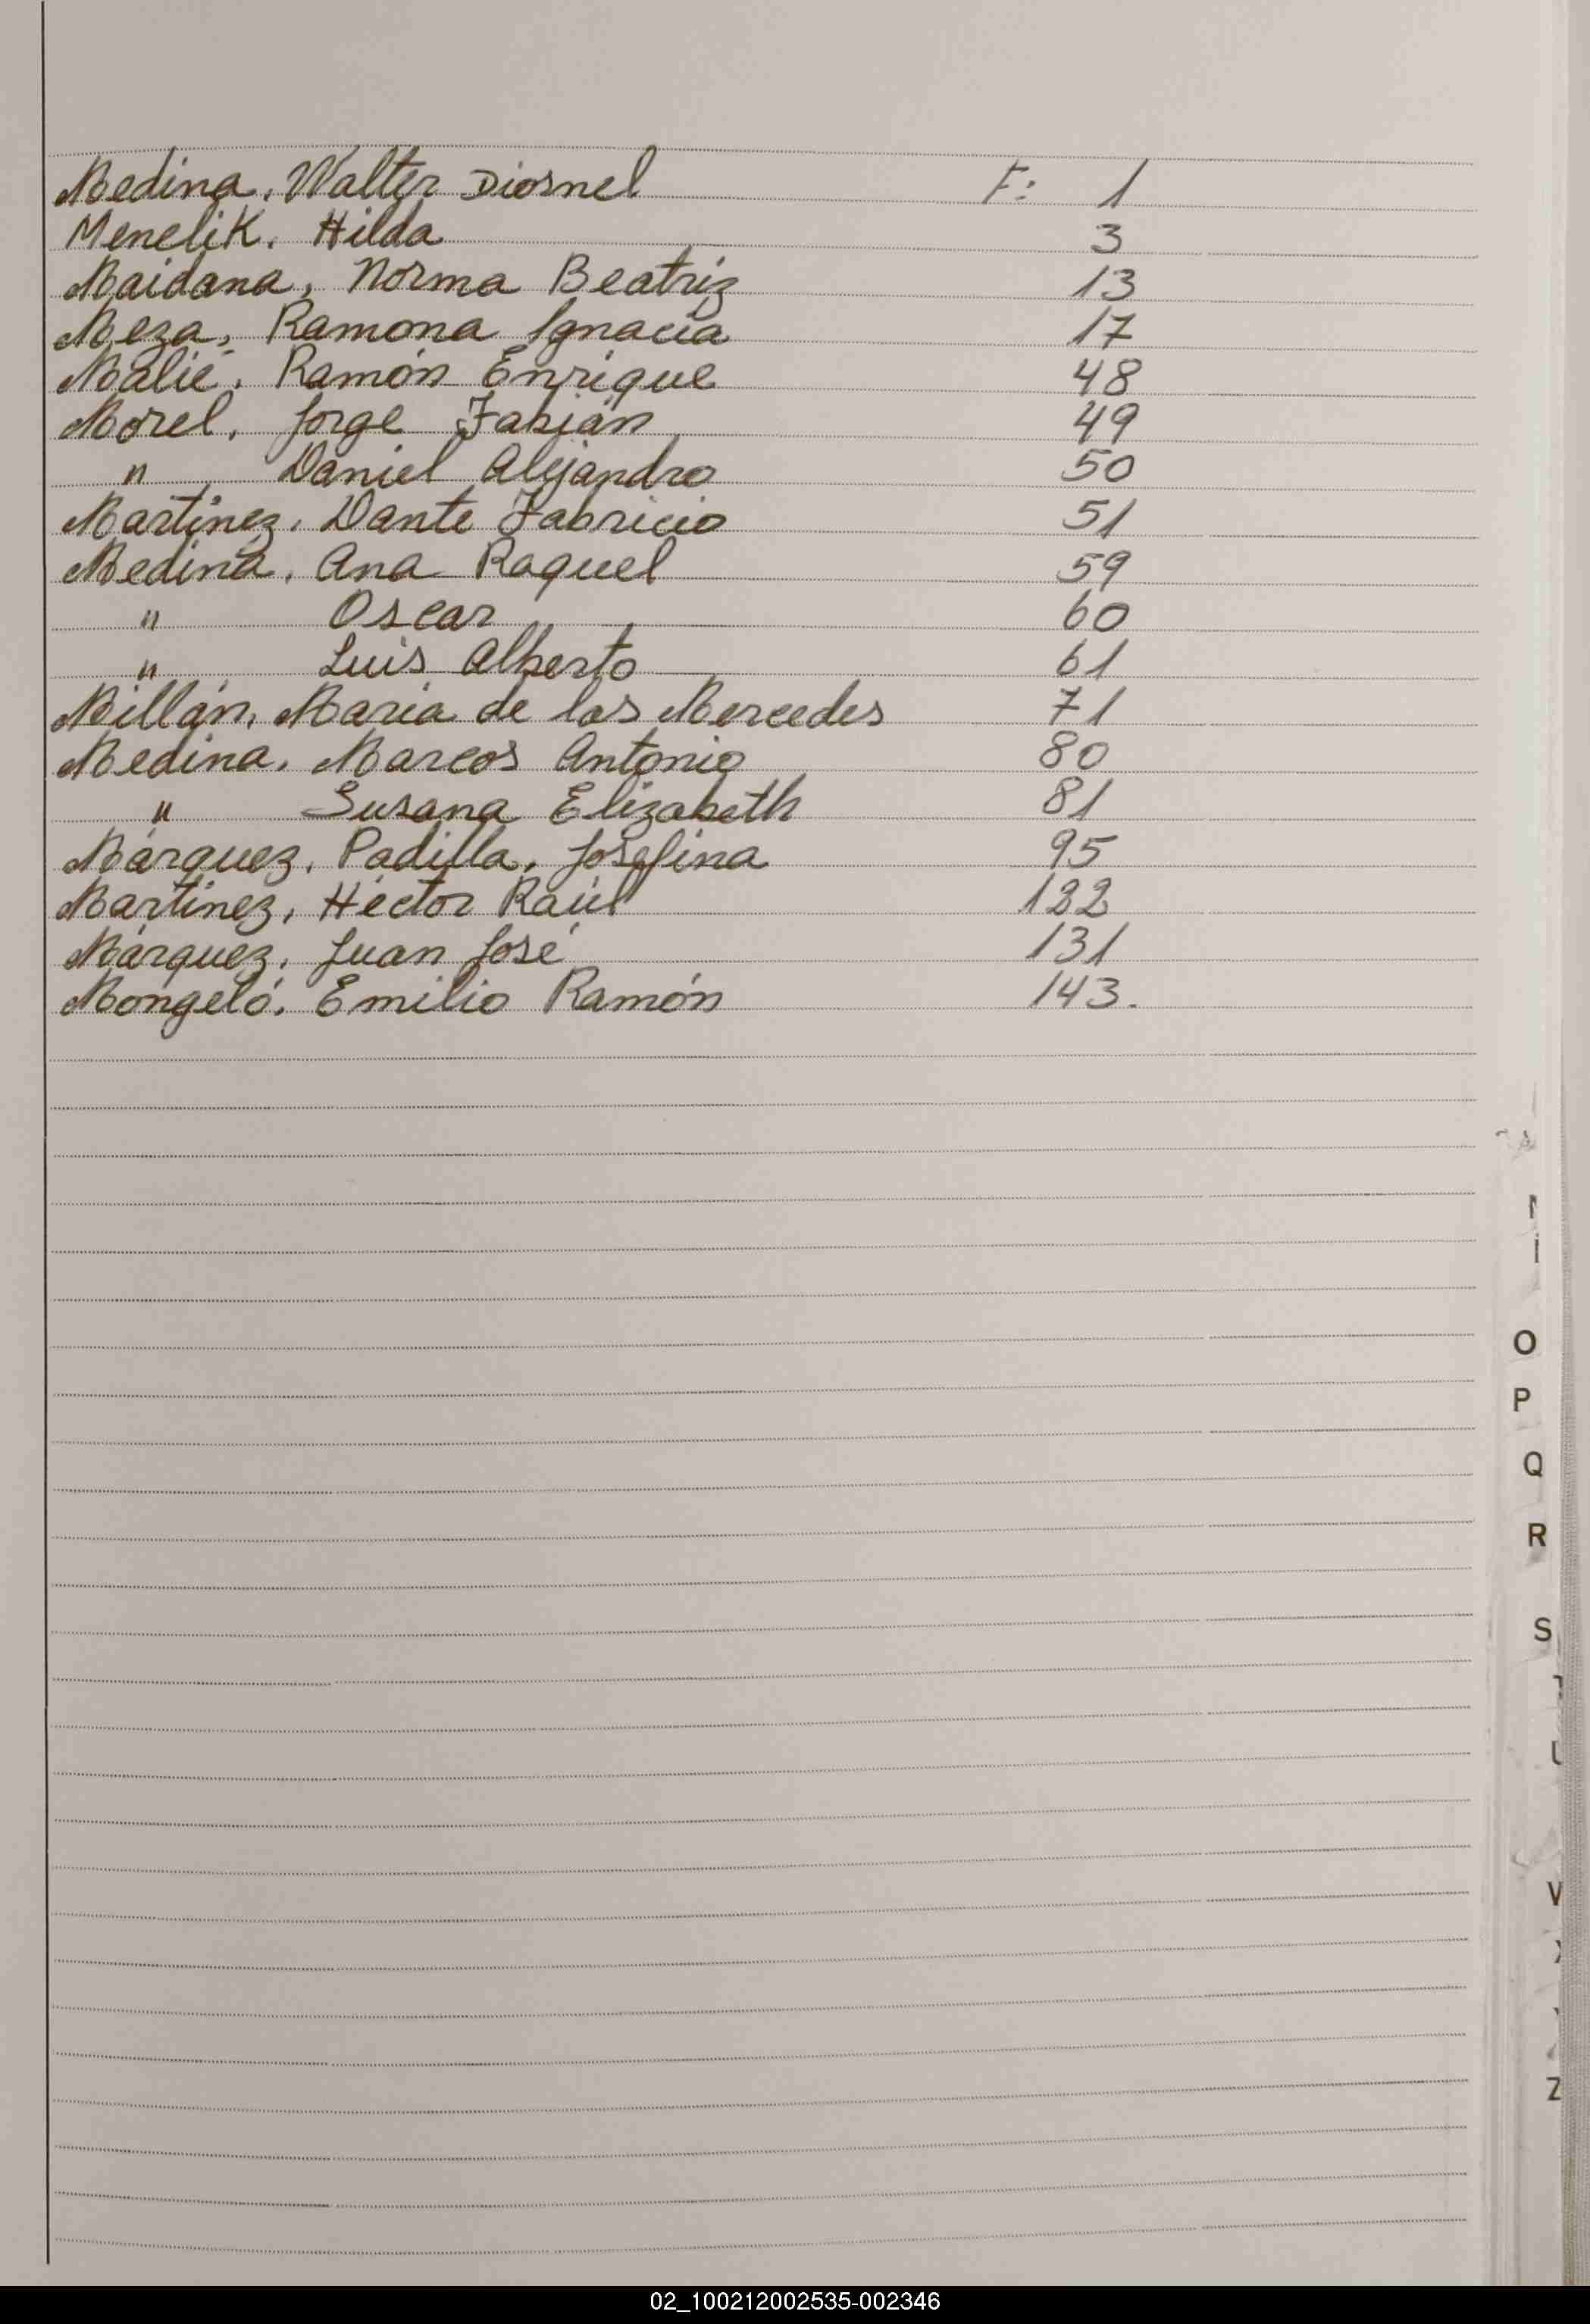 Medina, Walter Diosnel F: 1
Menelik, Hilda 3
Maidana, Norma Beatriz 13
Meza, Ramona Ignacia 17
Malié, Ramón Enrique 48
Morel, Jorge Fabián 49
" Daniel Alejandro 50
Martínez, Dante Fabricio 51
Medina, Ana Raquel 59
" Oscar 60
" Luis Alberto 61
Millán, María de las Mercedes 71
Medina, Marcos Antonio 80
" Susana Elizabeth 81
Márquez, Padilla, Josefina 95
Martínez, Héctor Raúl 122
Márquez, Juan José 131
Mongeló, Emilio Ramón 143.
O
P
Q
R
S
V
Z
02_100212002535-002346